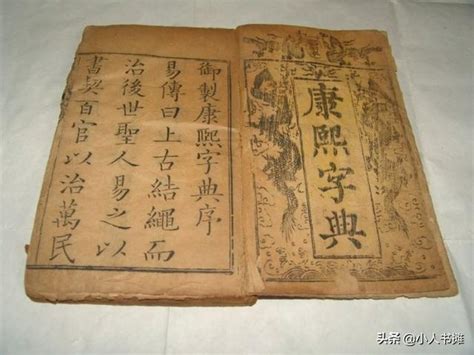 康熙字典
御製康熙字典序
易傳曰上古結繩而
治後世聖人易之以
書契百官以治萬民
头条 @小人书摊